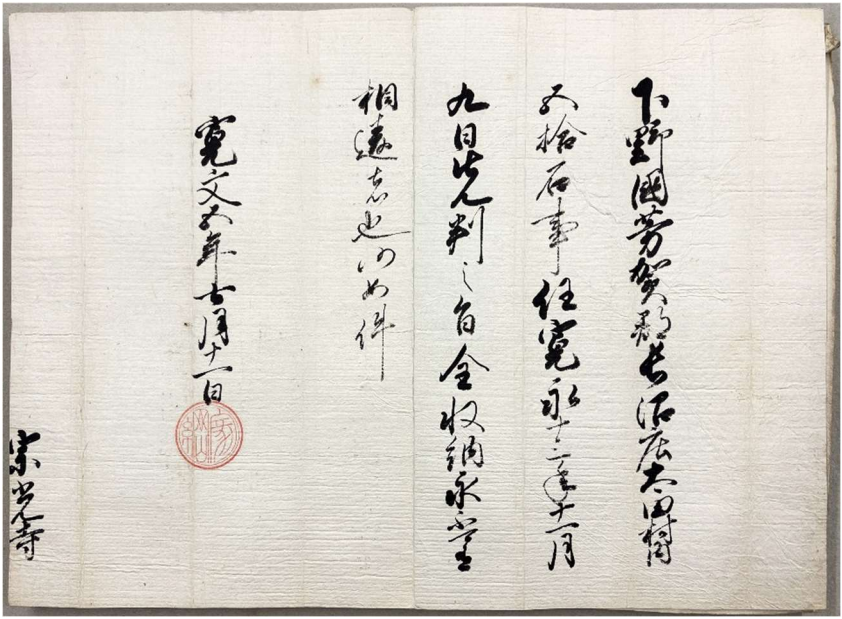 下野國芳賀郡長沼庄太田村内
五拾石事任寛永十三年十一月
九日先判之旨全収納永不可有
相違者也仍如件
寛文五年七月十一日
家綱
宗光寺